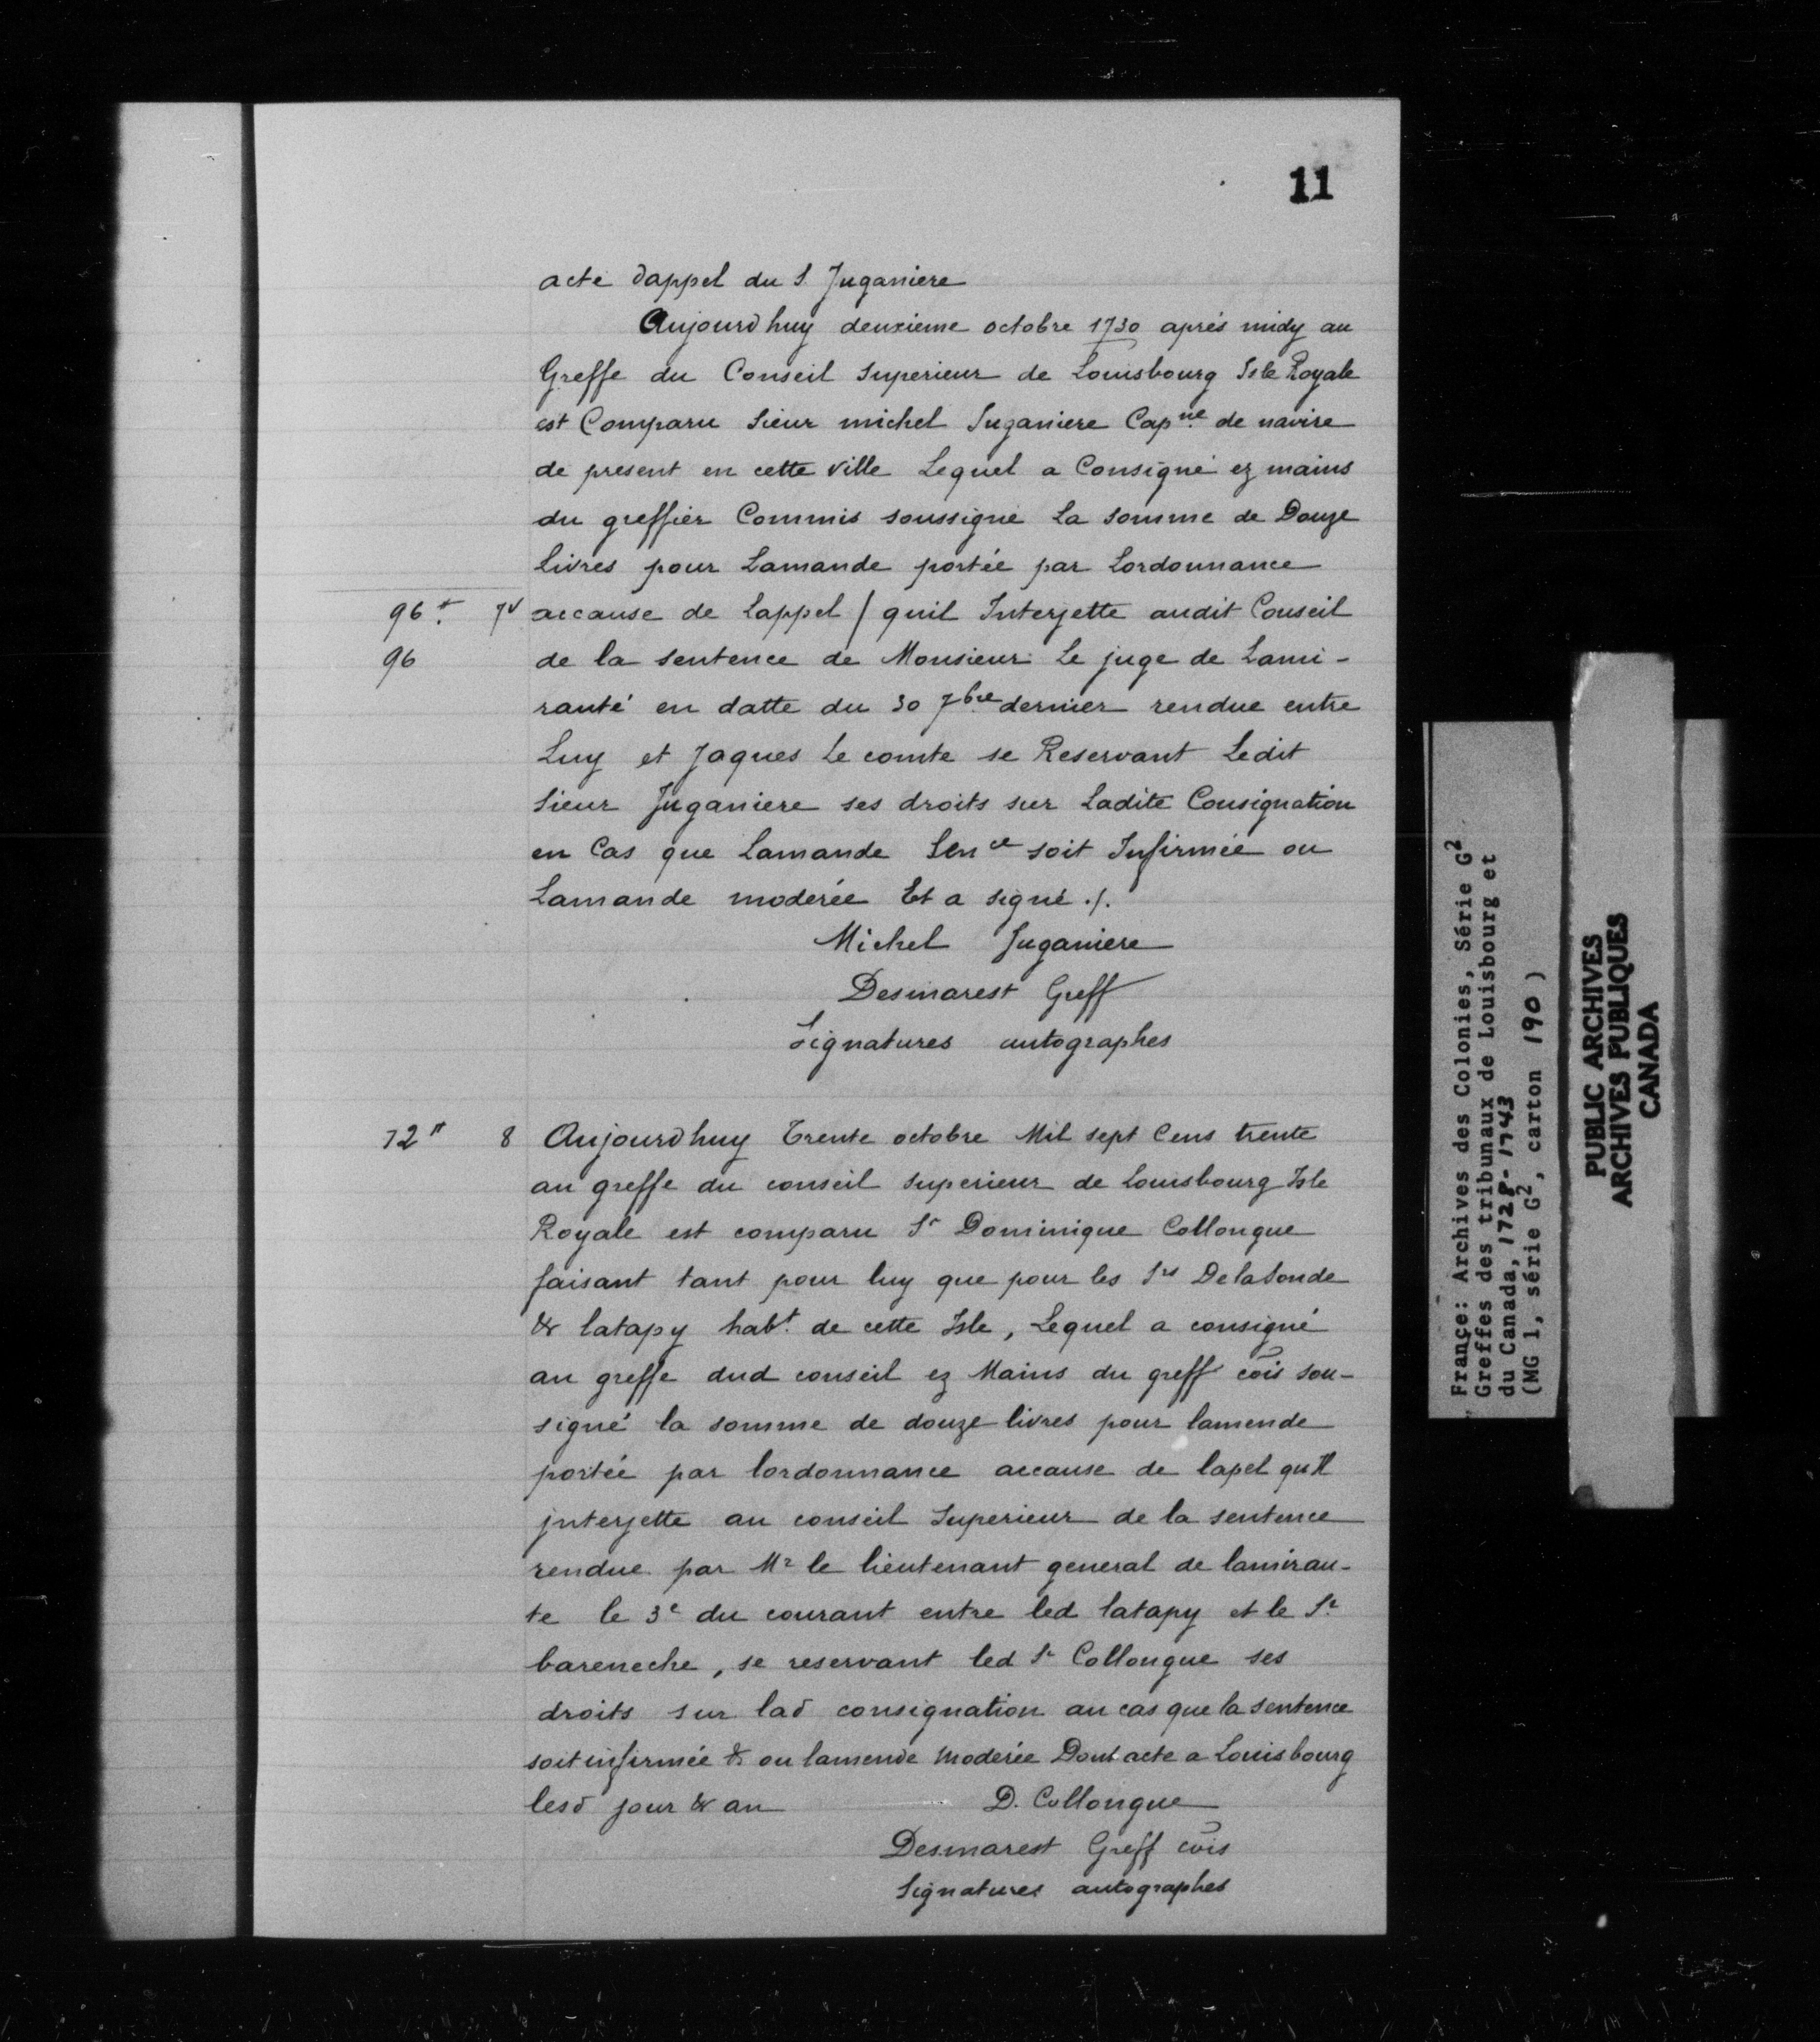 11
acte dappel du S. Juganiere
Aujourdhuy deuxieme octobre 1730 aprés midy au
Greffe du Conseil Superieur de Louisbourg Isle Royale
est Comparu Sieur michel Juganiere Capne de navire
de present en cette ville Lequel a Consigné ez mains
du greffier Commis soussigné La Somme de Douze
Livres pour Lamande portée par Lordonnance
96 7v accause de Lappel / quil Interjette audit Conseil
96 de la sentence de Monsieur Le juge de Lami-
rauté en datte du 30 7bre dernier rendue entre
Luy et Jaques Le comte se Reservant Ledit
Sieur Juganiere ses droits sur Ladite Consignation
en Cas que Lamande Sence soit Infirmée ou
Lamande moderée Et a signé ./.
Michel Juganiere
Desmarest Greff
Signatures autographes
72 8 Aujourdhuy Trente octobre Mil sept Cens trente
au greffe du conseil superieur de Louisbourg Isle
Royale est comparu Sr Dominique Collongue
faisant tant pour luy que pour les Srs Delasonde
& latapy habt. de cette Isle, Lequel a consigné
au greffe dud conseil ez Mains du greff cõis sou-
signé la somme de douze livres pour lamende
portée par lordonnance accause de lapel quIl
jnterjette au conseil Superieur de la sentence
rendue par Mr le lieutenant general de lamirau-
te le 3e du courant entre led latapy et le Sr
bareneche, se reservant led Sr Collongue ses
droits sur lad consignation au cas que la sentence
soit infirmée & ou lamende moderée Dont acte a Louisbourg
lesd jour & an D. Collongue
Desmarest Greff cõis
Signatures autographes
France: Archives des Colonies, Série G2
Greffes des tribunaux de Louisbourg et
du Canada, 1728-1743
(MG 1, série G2, carton 190)
PUBLIC ARCHIVES
ARCHIVES PUBLIQUES
CANADA